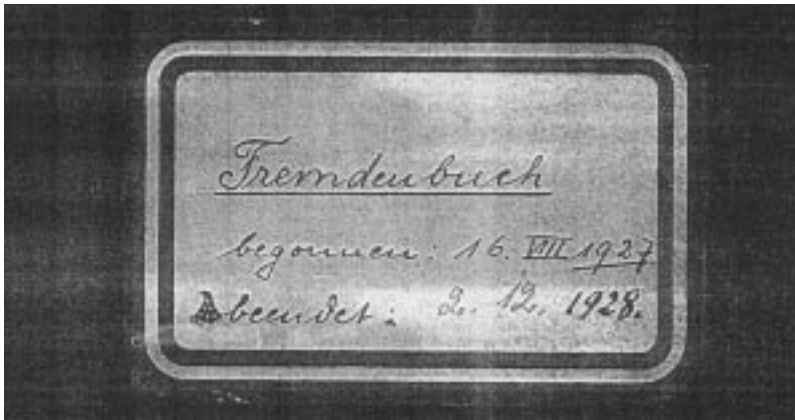 Fremdenbuch
begonnen: 16. VIII 1927
beendet: 2. 12. 1928.